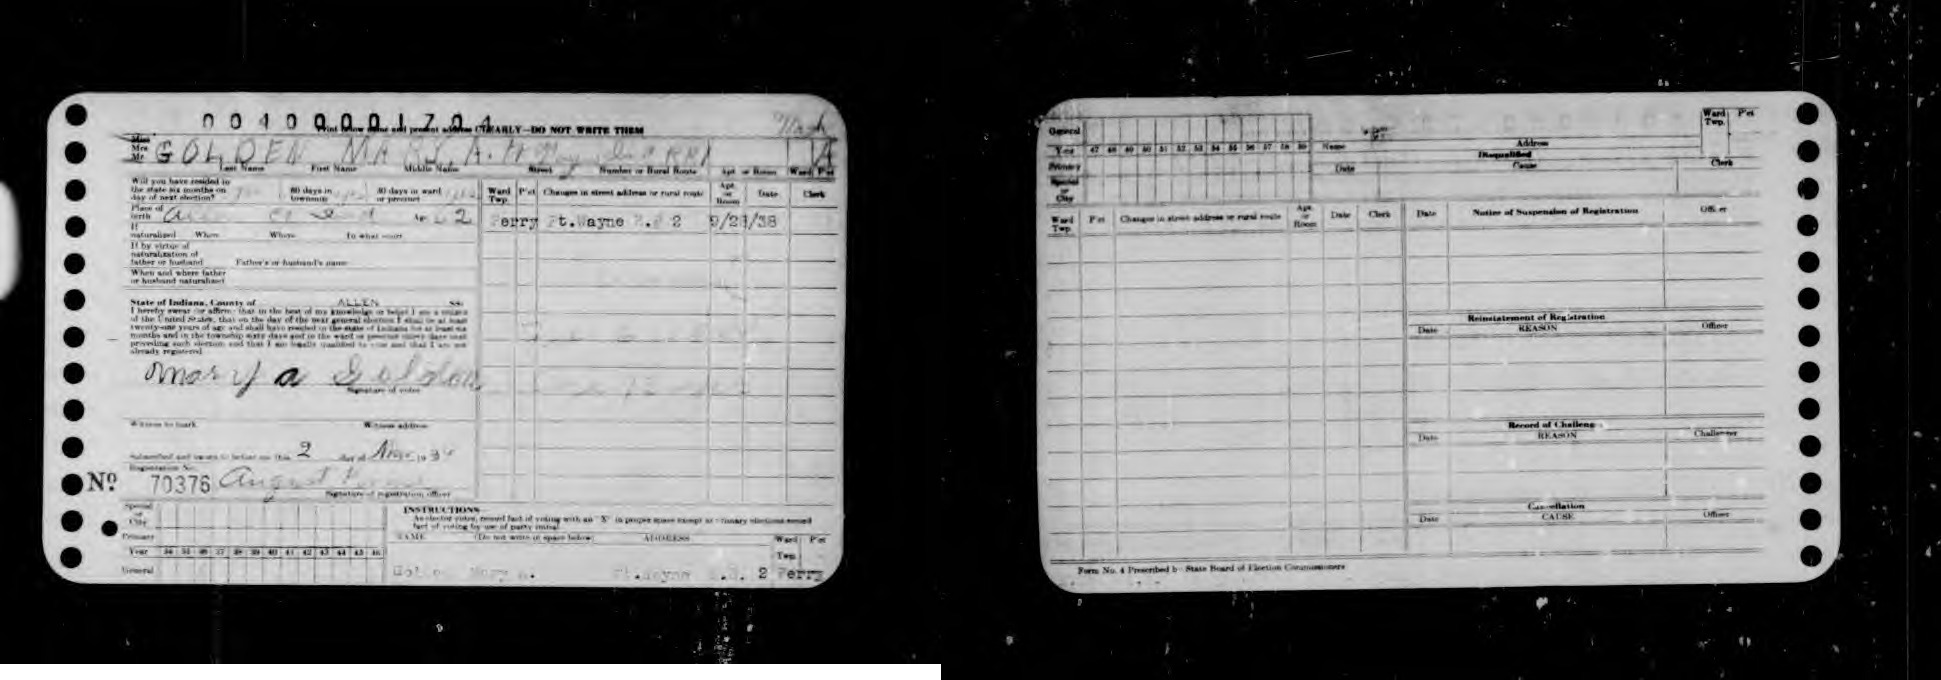 00400001704
Print below name and present address CLEARLY—DO NOT WRITE THEM
Miss
Mrs.
Mr. GOLDEN MARY A. RR1 A
Last Name First Name Middle Name Street Number or Rural Route Apt. or Room Ward P'ct
Will you have resided in
the state six months on 60 days in 30 days in ward
day of next election? township or precinct
Place of
birth Age
If
naturalized When Where In what court
If by virtue of
naturalization of
father or husband Father's or husband's name
When and where father
or husband naturalized
State of Indiana, County of ALLEN SS:
I hereby swear (or affirm) that to the best of my knowledge or belief I am a citizen
of the United States, that on the day of the next general election I shall be at least
twenty-one years of age and shall have resided in the state of Indiana for at least six
months and in the township sixty days and in the ward or precinct thirty days next
preceding such election and that I am legally qualified to vote and that I am not
already registered.
Mary a Golden
Signature of voter
Witness to mark Witness address
Subscribed and sworn to before me this 2 day of
Registration No.
Nº 70376 August
Signature of registration officer
Ward Twp. P'ct Changes in street address or rural route Apt. or Room Date Clerk
Perry Ft.Wayne R.R 2 9/23/38
Special
or
City
Primary
Year 34 35 36 37 38 39 40 41 42 43 44 45 46
General
INSTRUCTIONS
As elector votes, record fact of voting with an "X" in proper space except at primary elections record
fact of voting by use of party initial.
NAME (Do not write in space below) ADDRESS Ward Twp. P'ct
Golden Mary A. Ft.Wayne R.R. 2 Perry
General
Year 47 48 49 50 51 52 53 54 55 56 57 58 59
Primary
Special
or
City
Name Address
Ward Twp. P'ct
Disqualified
Date Cause Clerk
Ward Twp. P'ct Changes in street address or rural route Apt. or Room Date Clerk
Date Notice of Suspension of Registration Officer
Reinstatement of Registration
Date REASON Officer
Record of Challenge
Date REASON Challenger
Cancellation
Date CAUSE Officer
Form No. 4 Prescribed by State Board of Election Commissioners